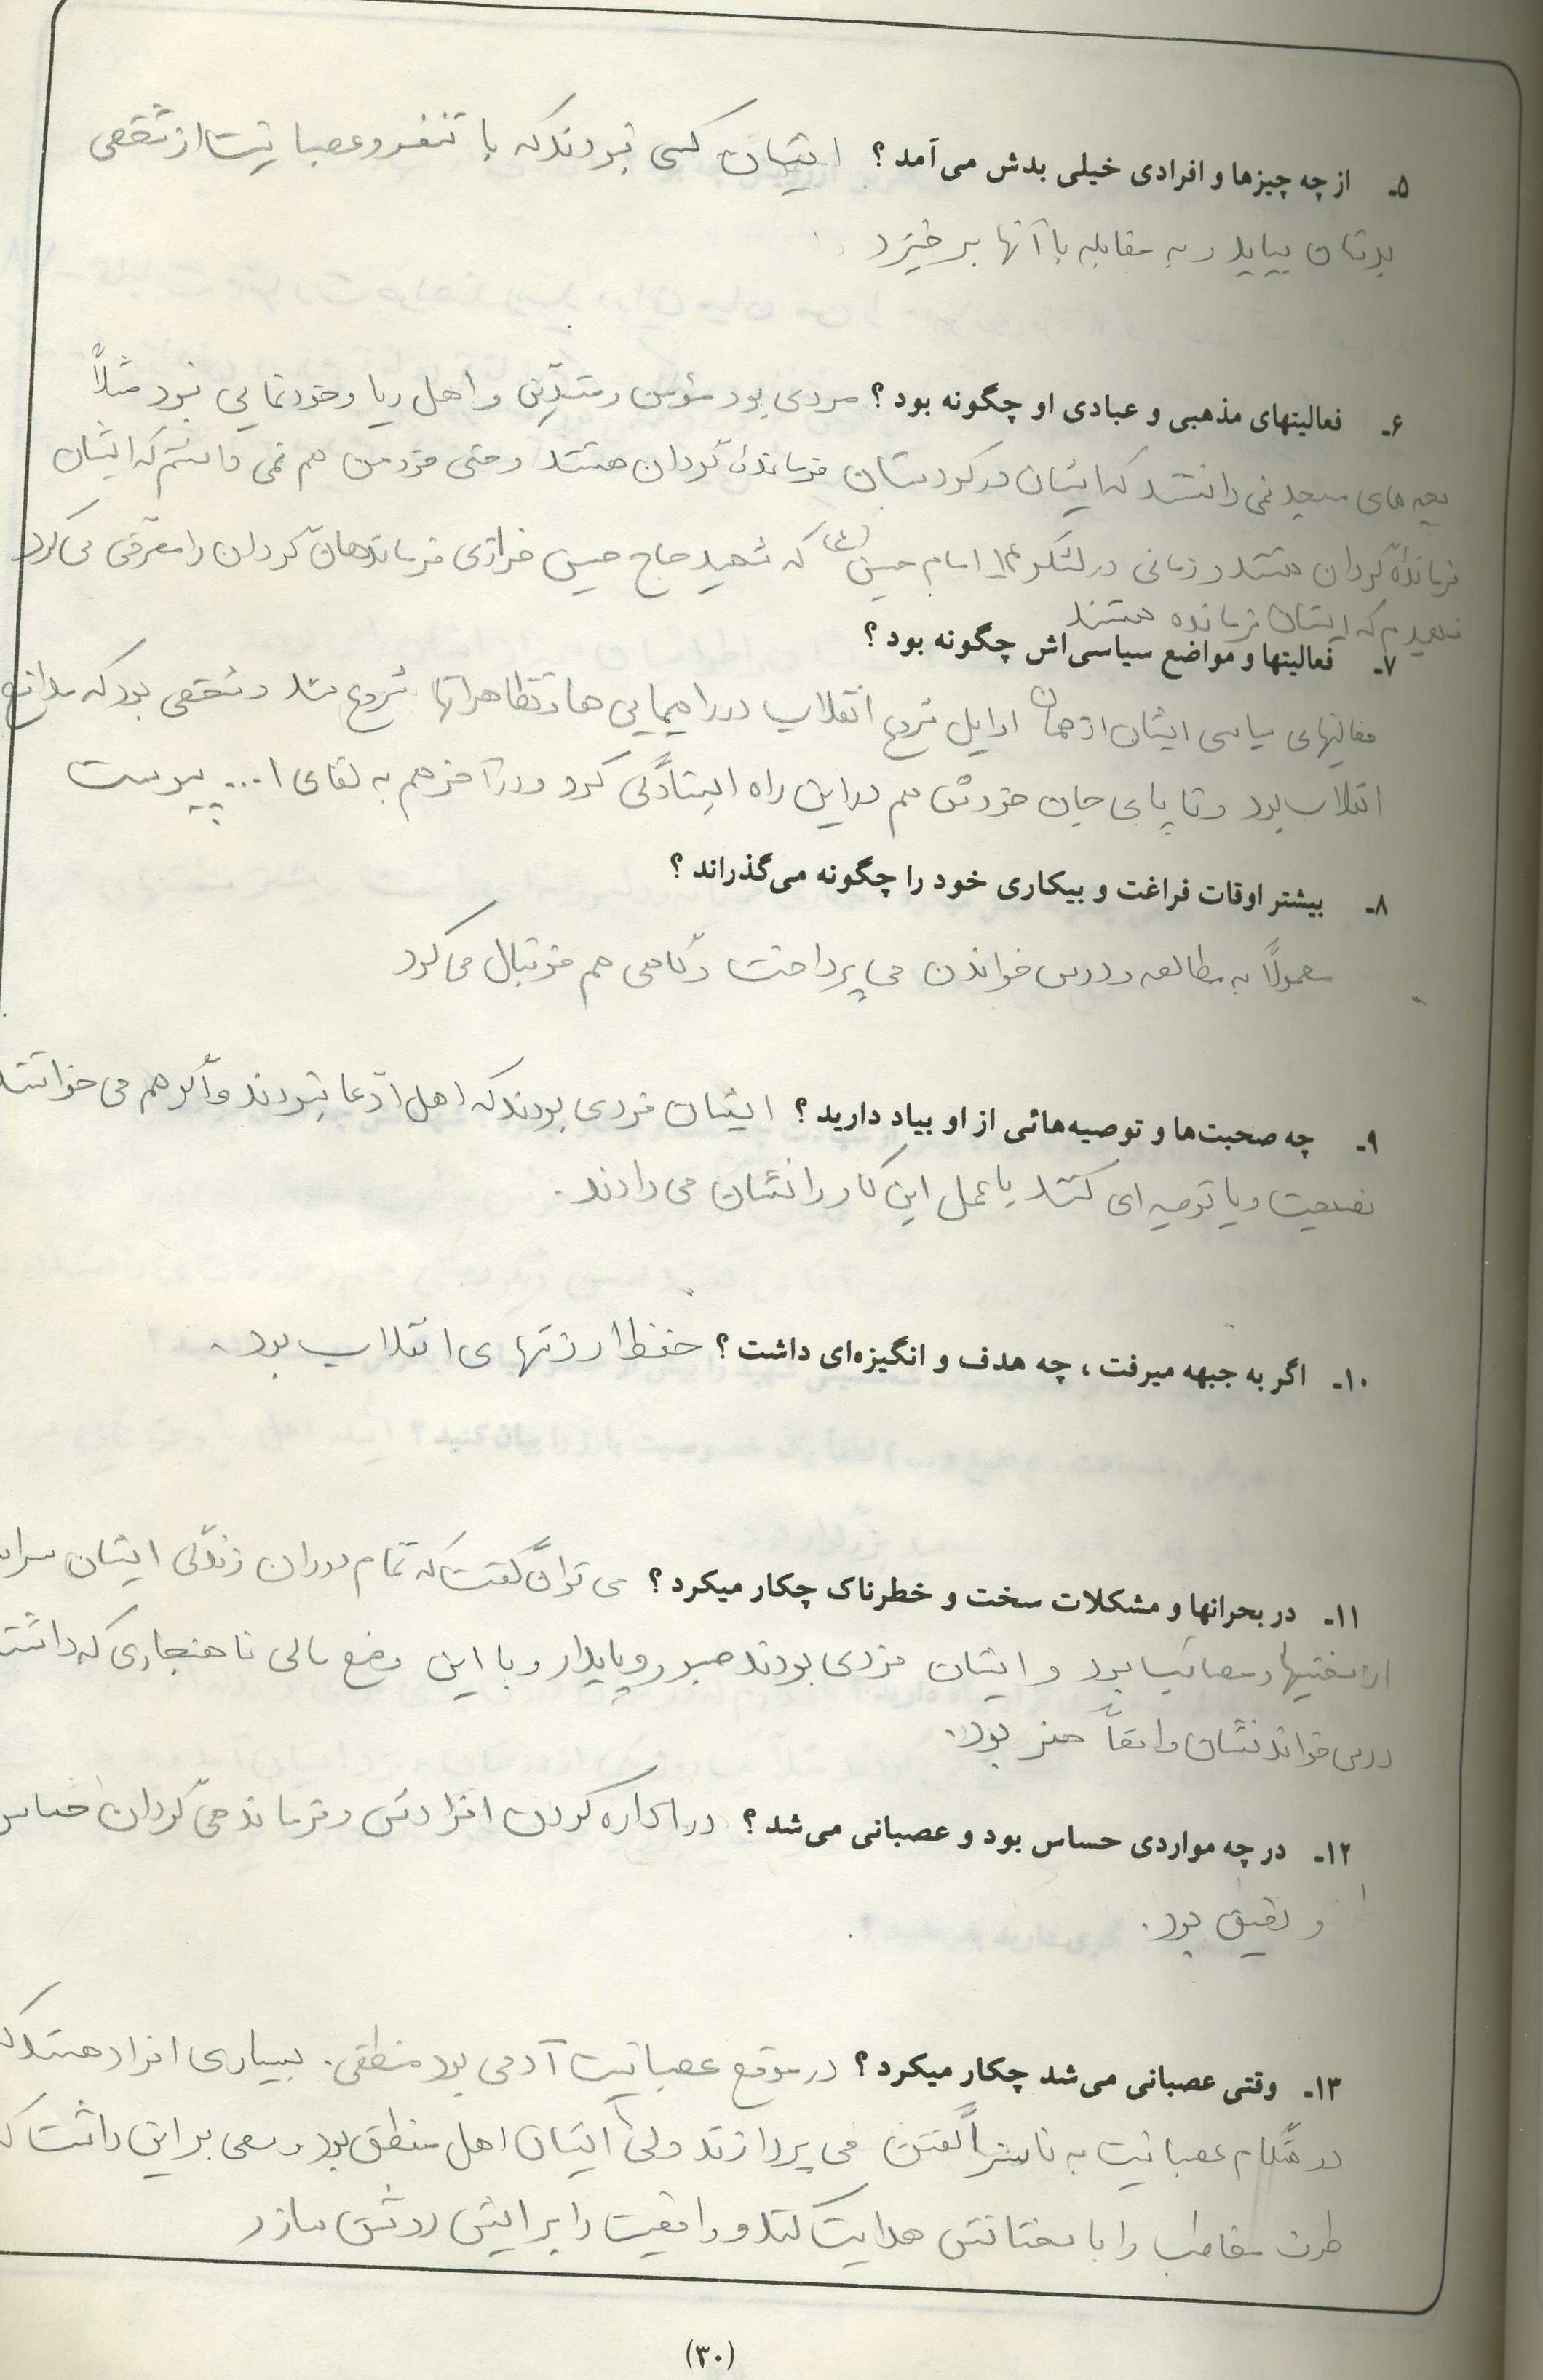 ۵ـ از چه چیزها و افرادی خیلی بدش می‌آمد ؟ ایشان کسی نبودند که با تنفر و عصبانیت از شخصی
بدشان بیاید و به مقابله با آنها برخیزد
۶ـ فعالیتهای مذهبی و عبادی او چگونه بود ؟ مردی بود مؤمن و متدیّن و اهل ریا و خودنمایی نبود مثلاً
بچه‌های مسجد نمی دانستند که ایشان در کردستان فرمانده گردان هستند و حتی خود من هم نمی دانستم که ایشان
فرمانده گردان هستند و زمانی در لشکر ۱۴ امام حسین (ع) که شهید حاج حسین خرازی فرماندهان گردان را معرفی می کرد
فهمیدم که ایشان فرمانده هستند
۷ـ فعالیتها و مواضع سیاسی‌اش چگونه بود ؟
فعالیتهای سیاسی ایشان از همان اوایل شروع انقلاب در راهپیمایی ها و تظاهراتها شروع شد و شخصی بود که مدافع
انقلاب بود و تا پای جان خودش هم در این راه ایستادگی کرد و در آخر هم به لقای ا... پیوست
۸ـ بیشتر اوقات فراغت و بیکاری خود را چگونه می‌گذراند ؟
معمولاً به مطالعه و درس خواندن می پرداخت و گاهی هم فوتبال می کرد
۹ـ چه صحبت‌ها و توصیه‌هائی از او بیاد دارید ؟ ایشان فردی بودند که اهل ادّعا نبودند و اگر هم می خواستند
نصیحت و یا توصیه ای کنند با عمل این کار را نشان می دادند.
۱۰ـ اگر به جبهه میرفت ، چه هدف و انگیزه‌ای داشت ؟ حفظ ارزشهای انقلاب بود.
۱۱ـ در بحرانها و مشکلات سخت و خطرناک چکار میکرد ؟ می توان گفت که تمام دوران زندگی ایشان
از سختیها و مصائب بود و ایشان فردی بودند صبور و پایدار و با این وضع مالی ناهنجاری که داشت
درس خواندنشان واقعاً هنر بود.
۱۲ـ در چه مواردی حساس بود و عصبانی می‌شد ؟ در اداره کردن افرادش و فرماندهی گردان حساس
و دقیق بود.
۱۳ـ وقتی عصبانی می‌شد چکار میکرد ؟ در موقع عصبانیت آدمی بود منطقی. بسیاری افراد هستند که
در هنگام عصبانیت به ناسزا گفتن می پردازند ولی ایشان اهل منطق بود و سعی بر این داشت که
طرف مخاطب را با سخنانش هدایت کند و واقعیت را برایش روشن سازد
(۳۰)